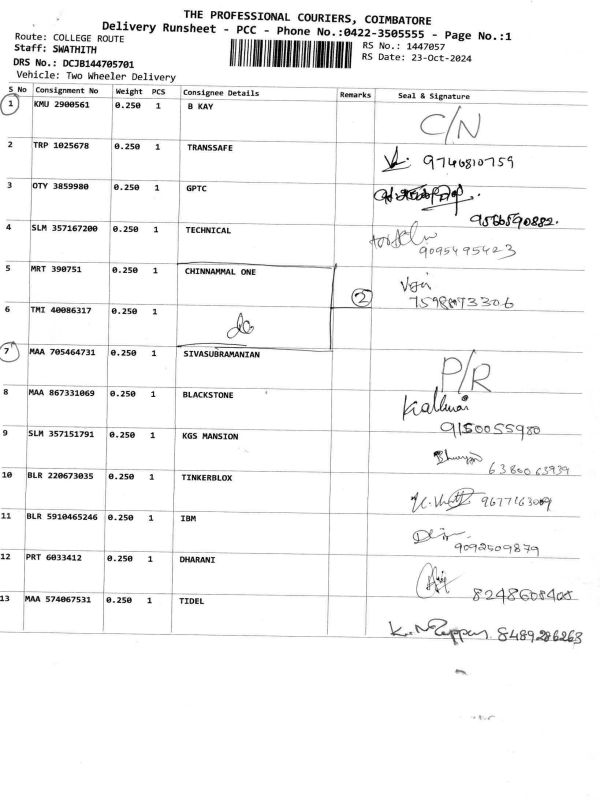 THE PROFESSIONAL COURIERS, COIMBATORE
Delivery Runsheet - PCC - Phone No.:0422-3505555 - Page No.:1
Route: COLLEGE ROUTE
RS No.: 1447057
Staff: SWATHITH
RS Date: 23-Oct-2024
DRS No.: DCJB144705701
Vehicle: Two Wheeler Delivery
S No Consignment No Weight PCS Consignee Details Remarks Seal & Signature
1 KMU 2900561 0.250 1 B KAY C/N
2 TRP 1025678 0.250 1 TRANSSAFE 9740810759
3 OTY 3859980 0.250 1 GPTC 9566590882.
4 SLM 357167200 0.250 1 TECHNICAL 9095495423
5 MRT 390751 0.250 1 CHINNAMMAL ONE 2
6 TMI 40086317 0.250 1 do
7 MAA 705464731 0.250 1 SIVASUBRAMANIAN P/R
8 MAA 867331069 0.250 1 BLACKSTONE 9150055980
9 SLM 357151791 0.250 1 KGS MANSION 6380063939
10 BLR 220673035 0.250 1 TINKERBLOX
11 BLR 5910465246 0.250 1 IBM 9092509879
12 PRT 6033412 0.250 1 DHARANI 8248608408
13 MAA 574067531 0.250 1 TIDEL 8489286263